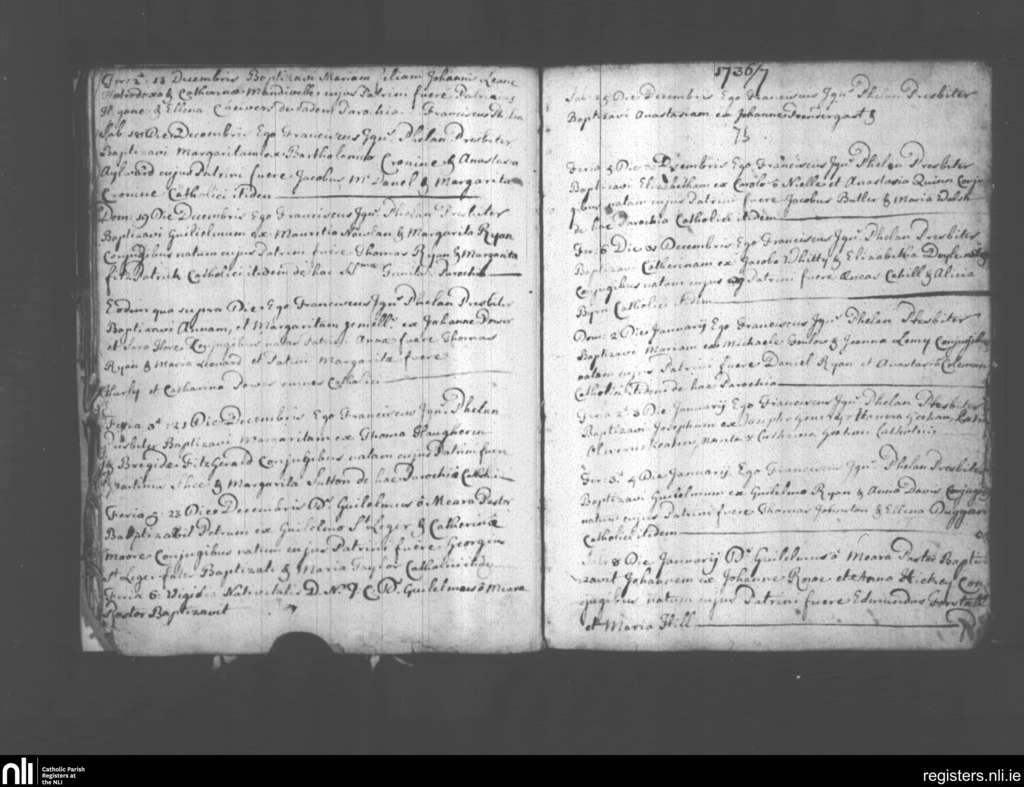 Fer: 2ª 13 Decembris Baptizavi Mariam filiam Johannis Leane
& Catharinæ Mandeville cujus Patrini fuere Patricius
& Ellena Cheevers de eadem Parochia Franciscus Phelan
Sab: 18 Die Decembris Ego Franciscus Ign.s Phelan Presbiter
Baptizavi Margaritam ex Bartholomeo Cronine & Anastasia
Aylward cujus Patrini fuere Jacobus Mc Daniel & Margarita
Cronine Catholici itidem
Dom: 19 Die Decembris Ego Franciscus Ign.s Phelan Presbiter
Baptizavi Guilielmum ex Mauritio Nowlan & Margarita Ryan
Conjugibus natum cujus Patrini fuere Thomas Ryan & Margarita
fitzPatrick Catholici itidem de hac Parochia
Eodem quo supra Die Ego Franciscus Ign.s Phelan Presbiter
Baptizavi Annam, et Margaritam gemell: ex Johanne Power
et Sara Hore Conjugibus natas Patrini Annæ fuere Thomas
Ryan & Maria Leonard et Patrini Margaritæ fuere
et Catharina Power omnes Catholici
Feria 3ª 21 Die Decembris Ego Franciscus Ign.s Phelan
Prisbiter Baptizavi Margaritam ex Thoma Haugheren
& Bregida FitzGerald Conjugibus natam cujus Patrini fuere
Martinus Shee & Margarita Sutton de hac Parochia Catholici
Feria 5: 23 Die Decembris D.s Guilelmus ô Meara Pastor
Baptizabit Petrum ex Guilelmo St Leger & Catherina
Moore Conjugibus natum cujus Patrini fuere Georgius
St Leger frater Baptizati & Maria Taylor Catholici itidem
Feria 6: Vigilia Nativitatis D. N. J. C. D.s Guilelmus ô Meara
Pastor Baptizavit
1736/7
Sab: 25 Die Decembris Ego Franciscus Ign.s Phelan Presbiter
Baptizavi Anastasiam ex Johanne Pendergast &
Feria 5 Die Decembris Ego Franciscus Ign.s Phelan Presbiter
Baptizavi Elizabetham ex Carolo ô Nielle et Anastasia Quinn Conju-
gibus natam cujus Patrini fuere Jacobus Butler & Maria Walsh
de hac Parochia Catholici itidem
Fer: 6 Die 31 Decembris Ego Franciscus Ign.s Phelan Presbiter
Baptizavi Catherinam ex Jacobo Whitty & Elizabetha Doyle
Conjugibus natam cujus Patrini fuere Æneas Cahill & Alicia
Byrn Catholici itidem
Dom: 2 Die Januarij Ego Franciscus Ign.s Phelan Presbiter
Baptizavi Mariam ex Michaele & Joanna Lemy Conjugibus
natam cujus Patrini fuere Daniel Ryan et Anastasia Coleman
Catholici itidem de hac Parochia
Feria 2ª 3 Die Januarij Ego Franciscus Ign.s Phelan Presbiter
Baptizavi Josephum ex Joseph
& Catherina Catholicis
Fer: 3ª 4 Die Januarij Ego Franciscus Ign.s Phelan Presbiter
Baptizavi Guilielmum ex Guilelmo Ryan & Anna Davis Conjugibus
natum cujus Patrini fuere Thomas Johnston & Ellena Duggan
Catholici itidem
Sab: 8 Die Januarij D.s Guilelmus ô Meara Pastor Bapti-
zavit Johannem ex Johanne et Anna Hickey Con-
jugibus natum cujus Patrini fuere Edmundus Forstall
et Maria Hill
nli
Catholic Parish
Registers at
the NLI
registers.nli.ie